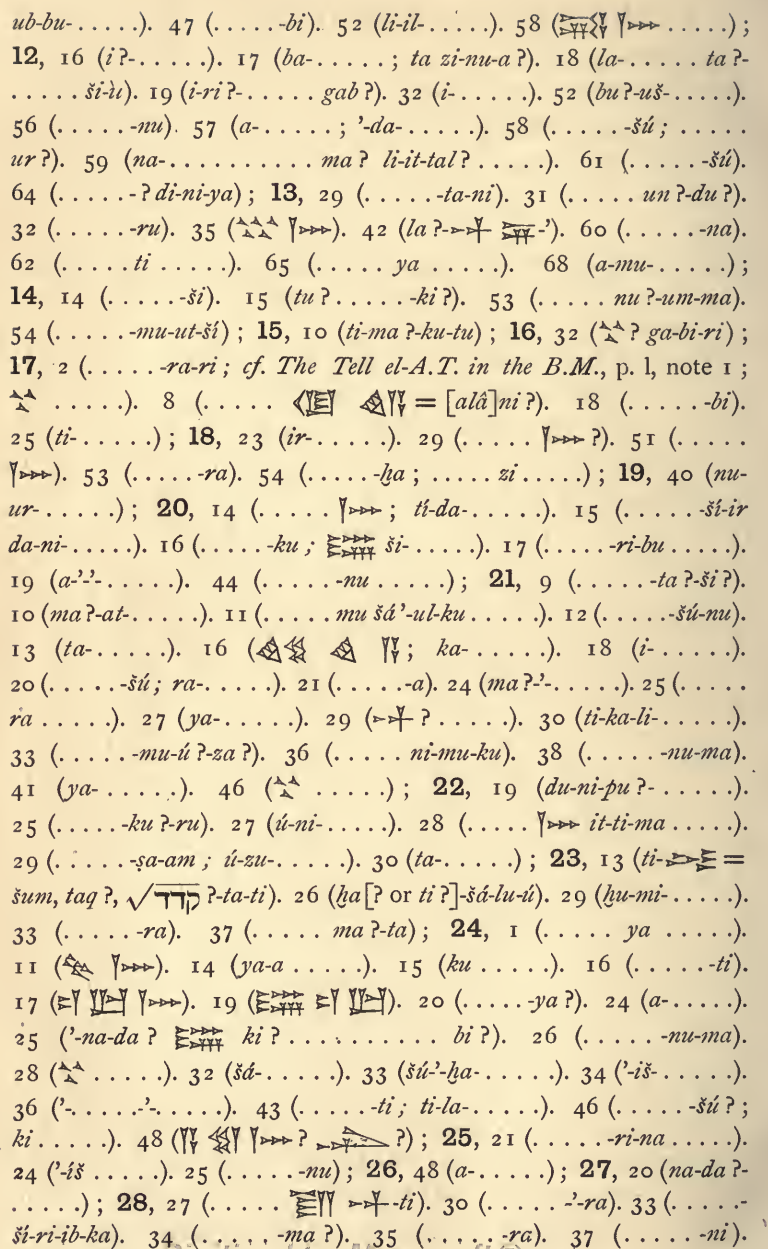 ub-bu- . . . . .). 47 (. . . . . -bi). 52 (li-il- . . . . .). 58 ( 𒈨𒌍 . . . . .) ;
12, 16 (i ?- . . . . .). 17 (ba- . . . . . ; ta zi-nu-a ?). 18 (la- . . . . . ta ?-
. . . . . ši-ù). 19 (i-ri ?- . . . . . gab ?). 32 (i- . . . . .). 52 (bu ?-uš- . . . . .).
56 (. . . . . -nu). 57 (a- . . . . . ; ’-da- . . . . .). 58 (. . . . . -šú ; . . . . .
ur ?). 59 (na- . . . . . . . . . . ma ? li-it-tal ? . . . . .). 61 (. . . . . -šú).
64 (. . . . . - ? di-ni-ya) ; 13, 29 (. . . . . -ta-ni). 31 (. . . . . un ?-du ?).
32 (. . . . . -ru). 35 ( 𒈨𒌍). 42 (la ?-𒀭 -’). 60 (. . . . . -na).
62 (. . . . . ti . . . . .). 65 (. . . . . ya . . . . .). 68 (a-mu- . . . . .) ;
14, 14 (. . . . . -ši). 15 (tu ? . . . . . -ki ?). 53 (. . . . . nu ?-um-ma).
54 (. . . . . -mu-ut-ší) ; 15, 10 (ti-ma ?-ku-tu) ; 16, 32 ( ? ga-bi-ri) ;
17, 2 (. . . . . -ra-ri ; cf. The Tell el-A.T. in the B.M., p. l, note 1 ;
 . . . . .). 8 (. . . . . = [alâ]ni ?). 18 (. . . . . -bi).
25 (ti- . . . . .) ; 18, 23 (ir- . . . . .). 29 (. . . . . 𒈨𒌍 ?). 51 (. . . . .
𒈨𒌍). 53 (. . . . . -ra). 54 (. . . . . -ḫa ; . . . . . zi . . . . .) ; 19, 40 (nu-
ur- . . . . .) ; 20, 14 (. . . . . 𒈨𒌍 ; tí-da- . . . . .). 15 (. . . . . -ší-ir
da-ni- . . . . .). 16 (. . . . . -ku ; ši- . . . . .). 17 (. . . . . -ri-bu . . . . .).
19 (a-’-’- . . . . .). 44 (. . . . . -nu . . . . .) ; 21, 9 (. . . . . -ta ?-ši ?).
10 (ma ?-at- . . . . .). 11 (. . . . . mu šá ’-ul-ku . . . . .). 12 (. . . . . -šú-nu).
13 (ta- . . . . .). 16 ( 𒀀 ; ka- . . . . .). 18 (i- . . . . .).
20 (. . . . . -šú ; ra- . . . . .). 21 (. . . . . -a). 24 (ma ?-’- . . . . .). 25 (. . . . .
ra . . . . .). 27 (ya- . . . . .). 29 (𒀭 ? . . . . .). 30 (ti-ka-li- . . . . .).
33 (. . . . . -mu-ú ?-za ?). 36 (. . . . . ni-mu-ku). 38 (. . . . . -nu-ma).
41 (ya- . . . . .). 46 ( . . . . .) ; 22, 19 (du-ni-pu ?- . . . . .).
25 (. . . . . -ku ?-ru). 27 (ú-ni- . . . . .). 28 (. . . . . 𒈨𒌍 it-ti-ma . . . . .).
29 (. . . . . -ṣa-am ; ú-zu- . . . . .). 30 (ta- . . . . .) ; 23, 13 (ti- =
šum, taq ?, √קדד ?-ta-ti). 26 (ḫa [? or ti ?]-šá-lu-ú). 29 (ḫu-mi- . . . . .).
33 (. . . . . -ra). 37 (. . . . . ma ?-ta) ; 24, 1 (. . . . . ya . . . . .).
11 ( 𒈨𒌍). 14 (ya-a . . . . .). 15 (ku . . . . .). 16 (. . . . . -ti).
17 ( 𒈨𒌍). 19 ( ). 20 (. . . . . -ya ?). 24 (a- . . . . .).
25 (’-na-da ? ki ? . . . . . . . . . . bi ?). 26 (. . . . . -nu-ma).
28 ( . . . . .). 32 (šá- . . . . .). 33 (šú-’-ḫa- . . . . .). 34 (’-iš- . . . . .).
36 (’- . . . . . -’- . . . . .). 43 (. . . . . -ti ; ti-la- . . . . .). 46 (. . . . . -šú ? ;
ki . . . . .). 48 (𒀀 𒈨𒌍 ? ?) ; 25, 21 (. . . . . -ri-na . . . . .).
24 (’-íš . . . . .). 25 (. . . . . -nu) ; 26, 48 (a- . . . . .) ; 27, 20 (na-da ?-
. . . . .) ; 28, 27 (. . . . . 𒀭-ti). 30 (. . . . . -’-ra). 33 (. . . . . -
ší-ri-ib-ka). 34 (. . . . . -ma ?). 35 (. . . . . -ra). 37 (. . . . . -ni).